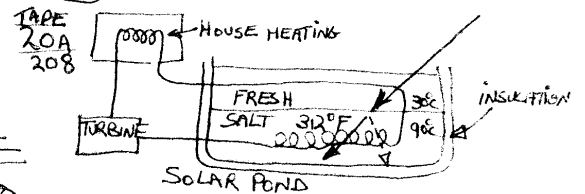 TAPE
20A
208
HOUSE HEATING
FRESH 30°C
SALT 312°F 90°C
INSULATION
TURBINE
SOLAR POND